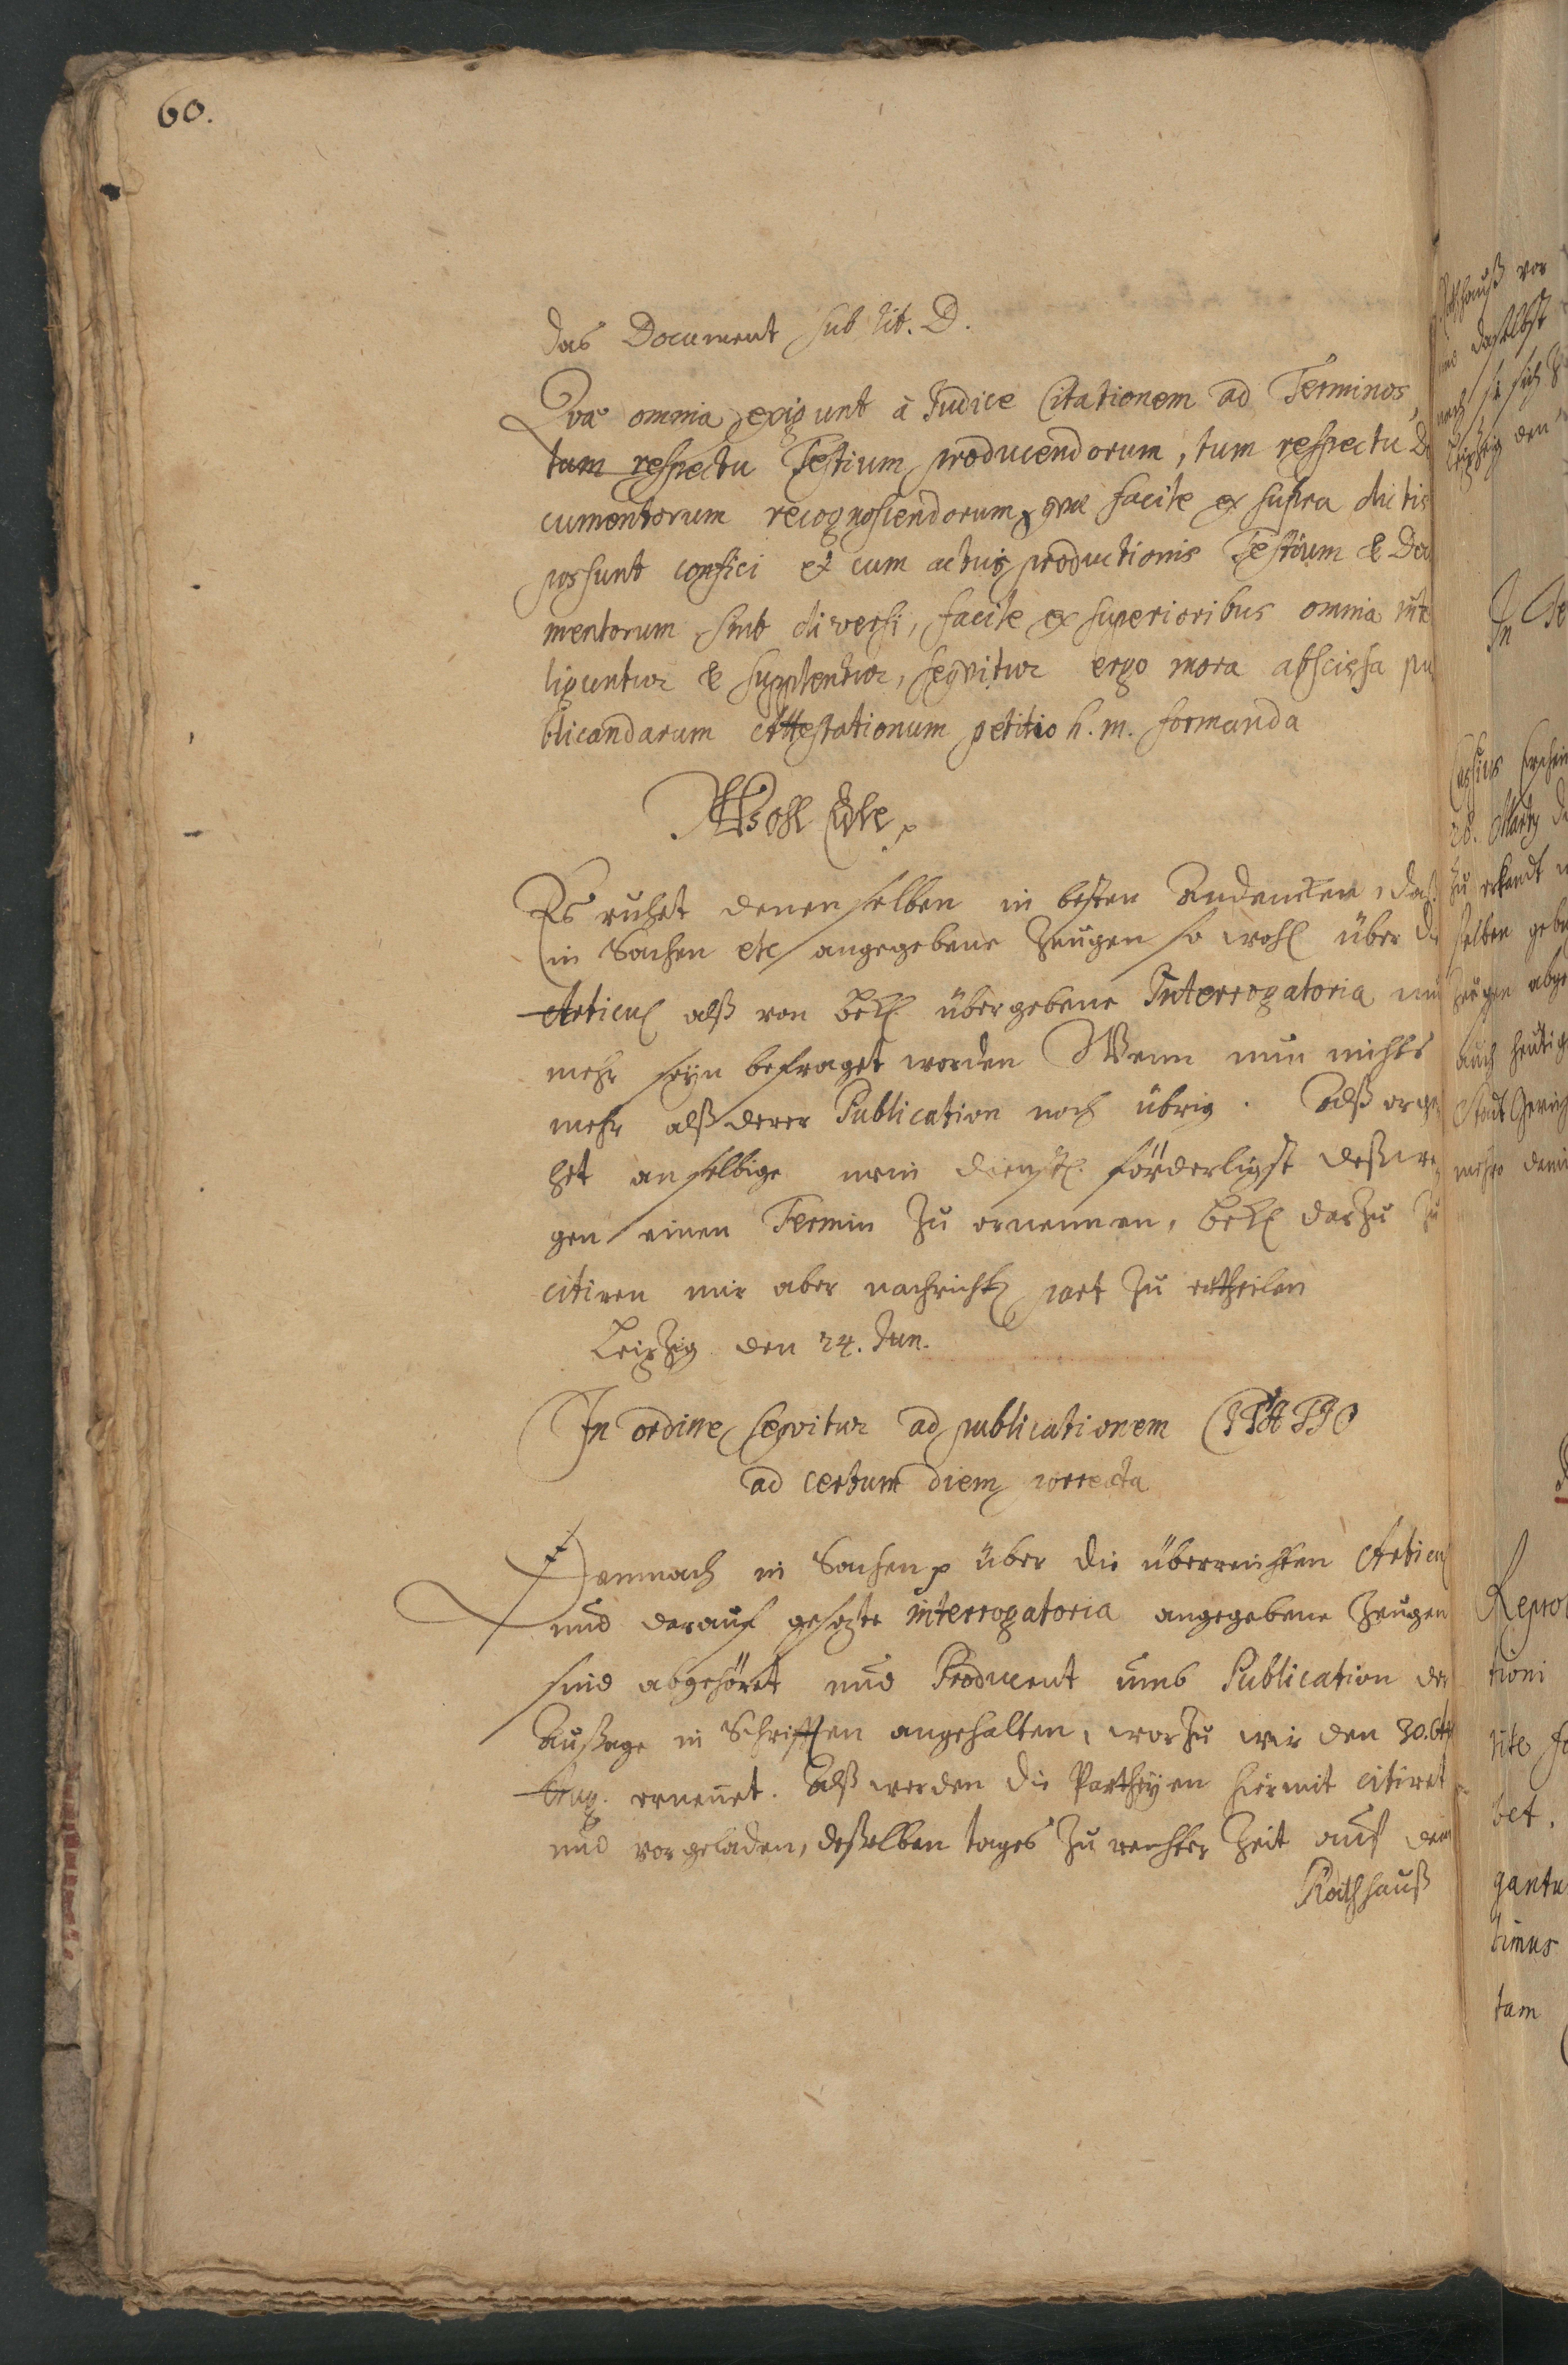 60.
das Document sub lit. D.
Qvæ omnia exigunt à Judice Citationem ad Terminos,
tum respectu Testium producendorum, tum respectu Do
cumentorum recognoscendorum, qvæ facile ex supra dictis
possunt confici et cum actus productionis Testium & Docu
mentorum sint diversi, facile ex superioribus omnia intel
liguntur & supplentur, seqvitur ergo mora abscissa pu
blicandarum Attestationum petitio h. m. formanda
Wohl Edle p
Es ruhet denenselben in besten Andencken, daß
in Sachen etc angegebene Zeugen so wohl über die
Articul alß von Bekl. übergebene Interrogatoria nun
mehr seyn befraget worden Wenn nun nichts
mehr alß derer Publication noch übrig. Alß erge
het an selbige mein dienstl. förderligst deßwe
gen einen Termin zu ernennen, Bekl darzu zu
citiren mir aber nachrichtl part zu ertheilen
Leipzig den 24. Jun.
In ordine seqvitur ad publicationem CITATIO
ad certum diem correcta
Demnach in Sachen p über die überreichten Articul
und darauf gesezte interrogatoria angegebene Zeugen
sind abgehöret und Producent umb Publication der
Außage in Schrifften angehalten, worzu wir den 30.
Aug. ernennet. Alß werden die Partheyen hiermit citiret
und vorgeladen, deßelben tages zu rechter Zeit auf dem
Rathhauß